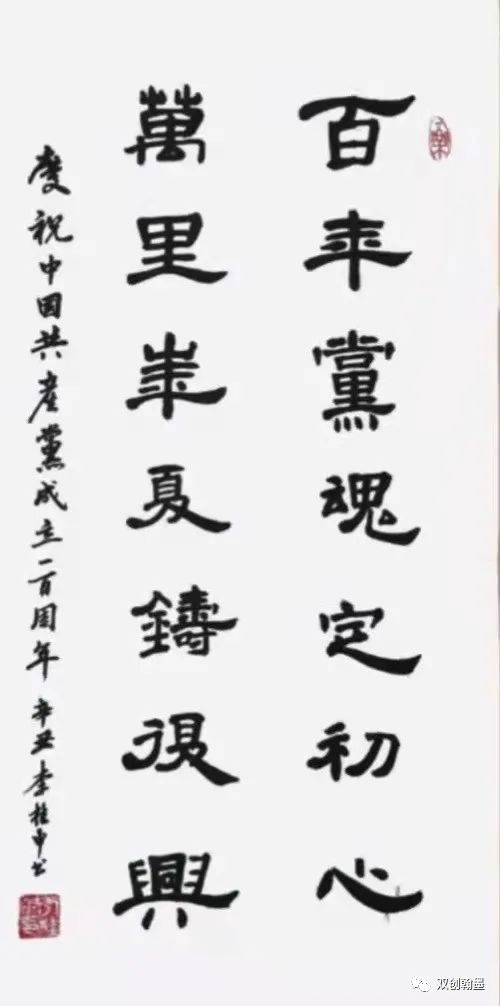 百年黨魂定初心
萬里華夏鑄復興
慶祝中国共產黨成立一百周年 辛丑 李桂申书
双创翰墨